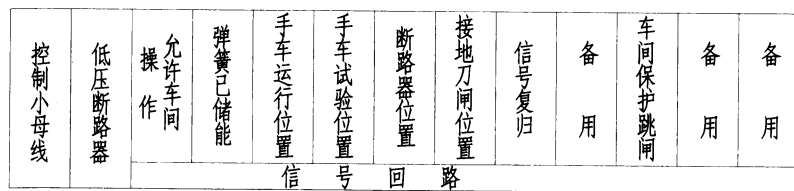 控制小母线
低压断路器
允许车间
操作
弹簧已储能
手车运行位置
手车试验位置
断路器位置
接地刀闸位置
信号复归
备用
车间保护跳闸
备用
备用
信号回路